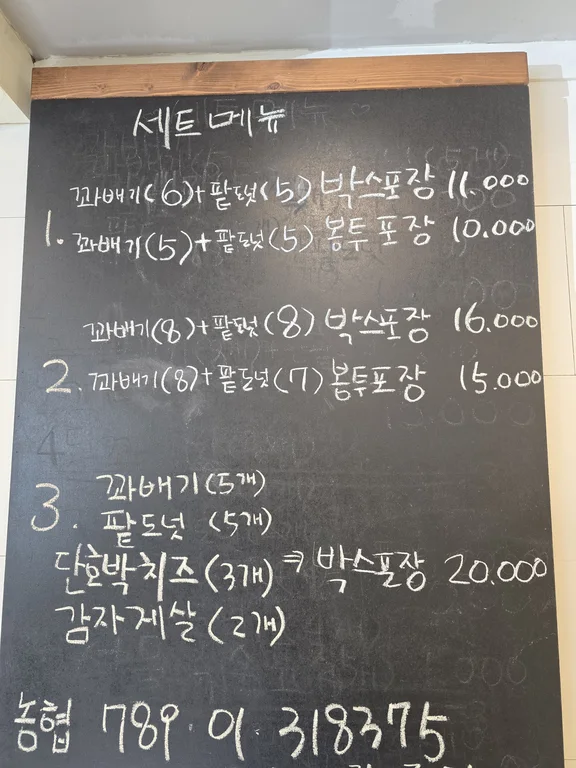 세트메뉴
꽈배기(6)+팥도넛(5) 박스포장 11.000
1. 꽈배기(5)+팥도넛(5) 봉투포장 10.000
꽈배기(8)+팥도넛(8) 박스포장 16.000
2. 꽈배기(8)+팥도넛(7) 봉투포장 15.000
3. 꽈배기(5개)
팥도넛 (5개)
단호박치즈(3개) ⇒ 박스포장 20.000
감자게살(2개)
농협 789.01.318375